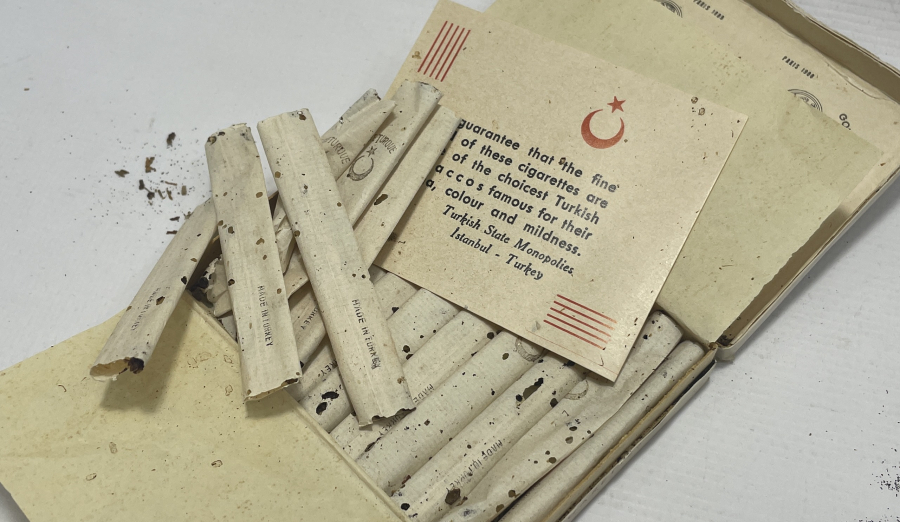 PARIS 1900
PARIS 1900
GO
guarantee that the fine
of these cigarettes are
of the choicest Turkish
accos famous for their
a, colour and mildness.
Turkish State Monopolies
Istanbul - Turkey
MADE IN TURKEY
MADE IN TURKEY